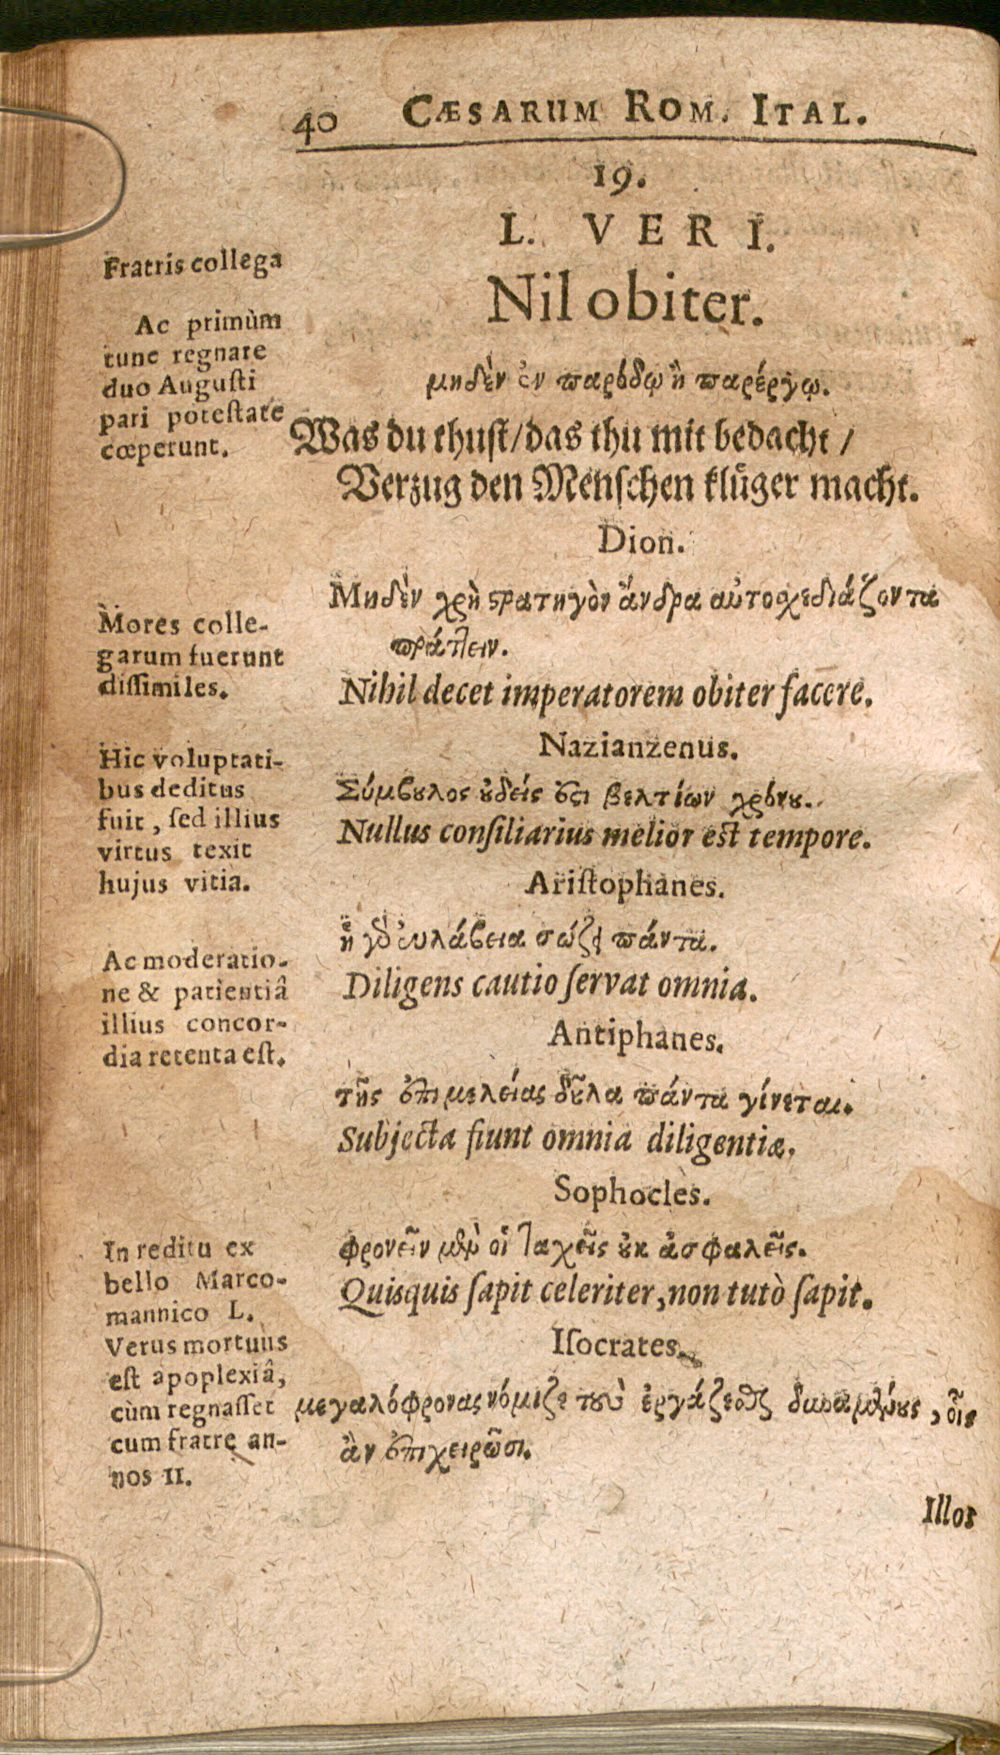 40 CÆSARUM ROM. ITAL.
19.
L. VERI.
Nil obiter.
μηδὲν ἐν παρόδῳ ἢ παρέργῳ.
Was du thust/das thu mit bedacht/
Verzug den Menschen klüger macht.
Dion.
Μηδὲν χρὴ στρατηγὸν ἄνδρα αὐτοχεδιάζοντα
πράττειν.
Nihil decet imperatorem obiter facere.
Nazianzenus.
Σύμβουλος οὐδείς ἐστι βελτίων χρόνου.
Nullus consiliarius melior est tempore.
Aristophanes.
ἡ γὸ εὐλάβεια σώζει πάντα.
Diligens cautio servat omnia.
Antiphanes.
τῆς ἐπιμελείας δοῦλα πάντα γίνεται.
Subjecta fiunt omnia diligentiæ.
Sophocles.
φρονεῖν μὲν οἱ ταχεῖς οὐκ ἀσφαλεῖς.
Quisquis sapit celeriter, non tutò sapit.
Isocrates.
μεγαλόφρονας νόμιζε τοὺ ἐργάζεσθαι δυναμένους, οἷς
ἂν ἐπιχειρῶσι.
Illos
Fratris collega
Ac primùm
tunc regnare
duo Augusti
pari potestate
cœperunt.
Mores colle-
garum fuerunt
dissimiles.
Hic voluptati-
bus deditus
fuit, sed illius
virtus texit
hujus vitia.
Ac moderatio-
ne & patientiâ
illius concor-
dia retenta est.
In reditu ex
bello Marco-
mannico L.
Verus mortuus
est apoplexiâ,
cùm regnasset
cum fratre an-
nos 11.